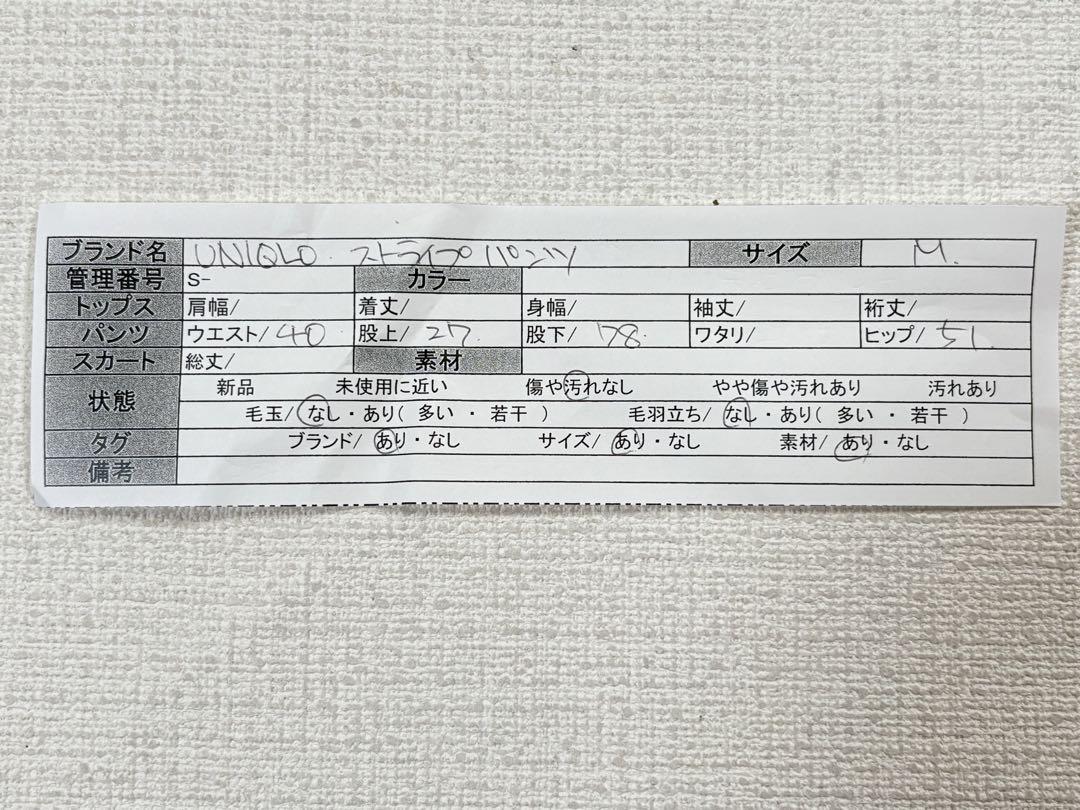 ブランド名 UNIQLO. ストライプパンツ サイズ M.
管理番号 S- カラー
トップス 肩幅/ 着丈/ 身幅/ 袖丈/ 裄丈/
パンツ ウエスト/ 40 股上/ 27. 股下/ 78. ワタリ/ ヒップ/ 51.
スカート 総丈/ 素材
状態 新品 未使用に近い 傷や汚れなし やや傷や汚れあり 汚れあり
毛玉/ なし・あり( 多い ・ 若干 ) 毛羽立ち/ なし・あり( 多い ・ 若干 )
タグ ブランド/ あり・なし サイズ/ あり・なし 素材/ あり・なし
備考